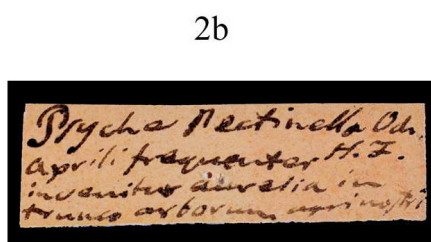 2b
Psyche Pectinella Och.
aprili frequenter H. Z.
invenitur aurelia in
trunco arborum agri nostri